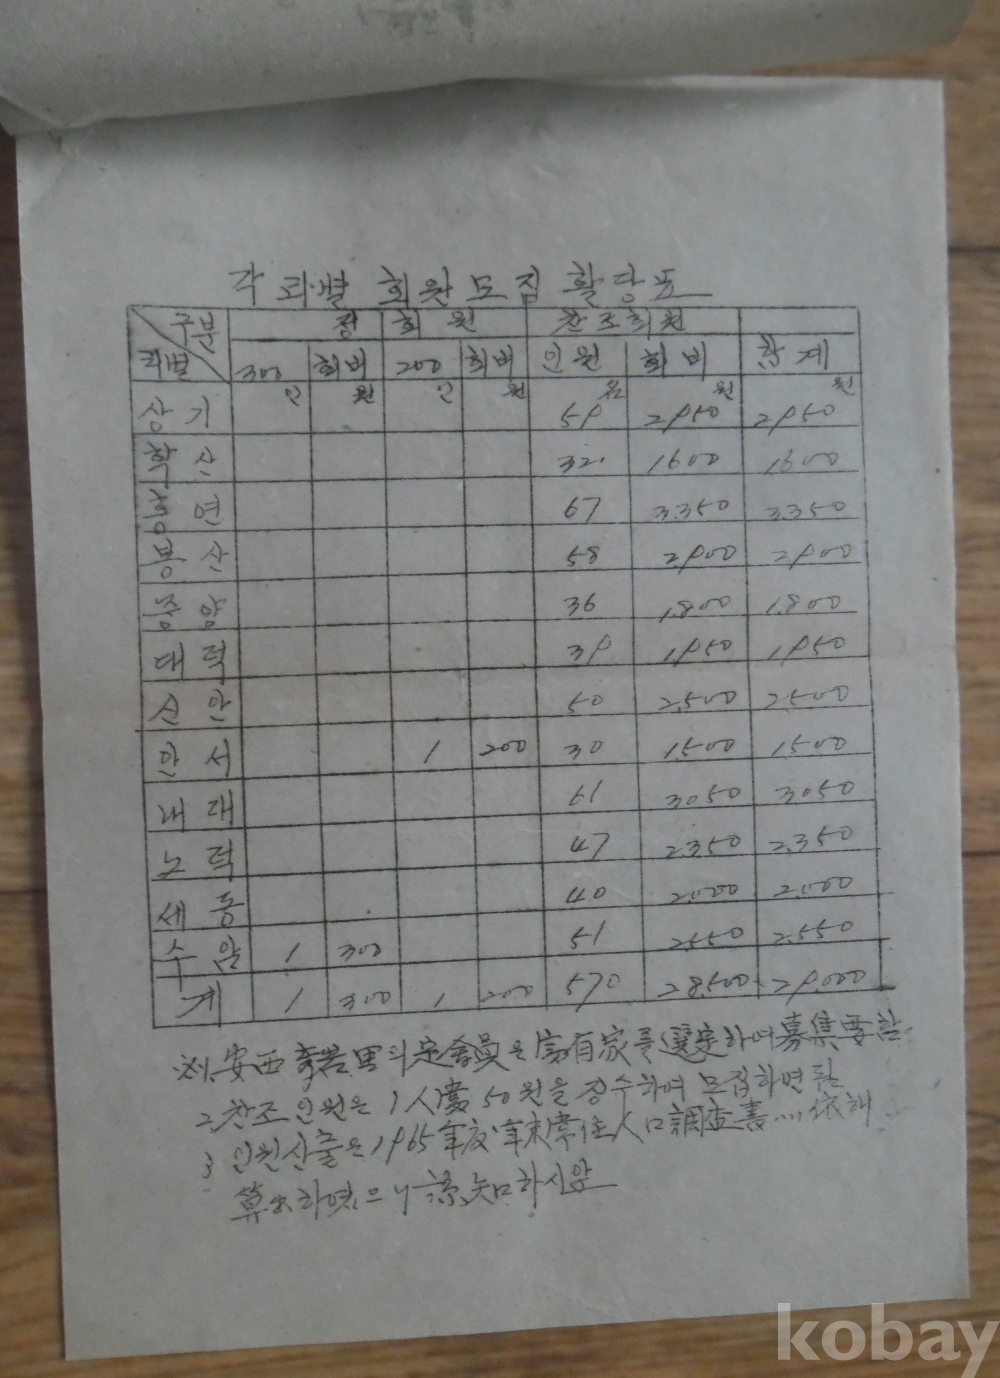 각 리별 회원모집 활당표
구분 정 회 원 찬조회원
리별 300 회비 200 회비 인원 회비 합계
인 원 인 원 名 원 원
상기 59 2950 2950
학산 32 1600 1600
홍연 67 3.350 3.350
봉산 58 2900 2900
중앙 36 1,800 1,800
대덕 39 1,950 1,950
신안 50 2,500 2500
안서 1 200 30 1,500 1,500
내대 61 3050 3,050
노덕 47 2,350 2,350
세동 40 2,000 2,000
수암 1 300 51 2550 2,550
계 1 300 1 200 570 28,500 29,000
※1. 安西 里의 定會員은 富有家를 選定하여 募集要함
2. 찬조인원은 1人當 50원을 징수하여 모집하면됨
3 인원산출은 1965年度 年末常住人口調査書 依해
算出하였으니 諒知하시압
kobay